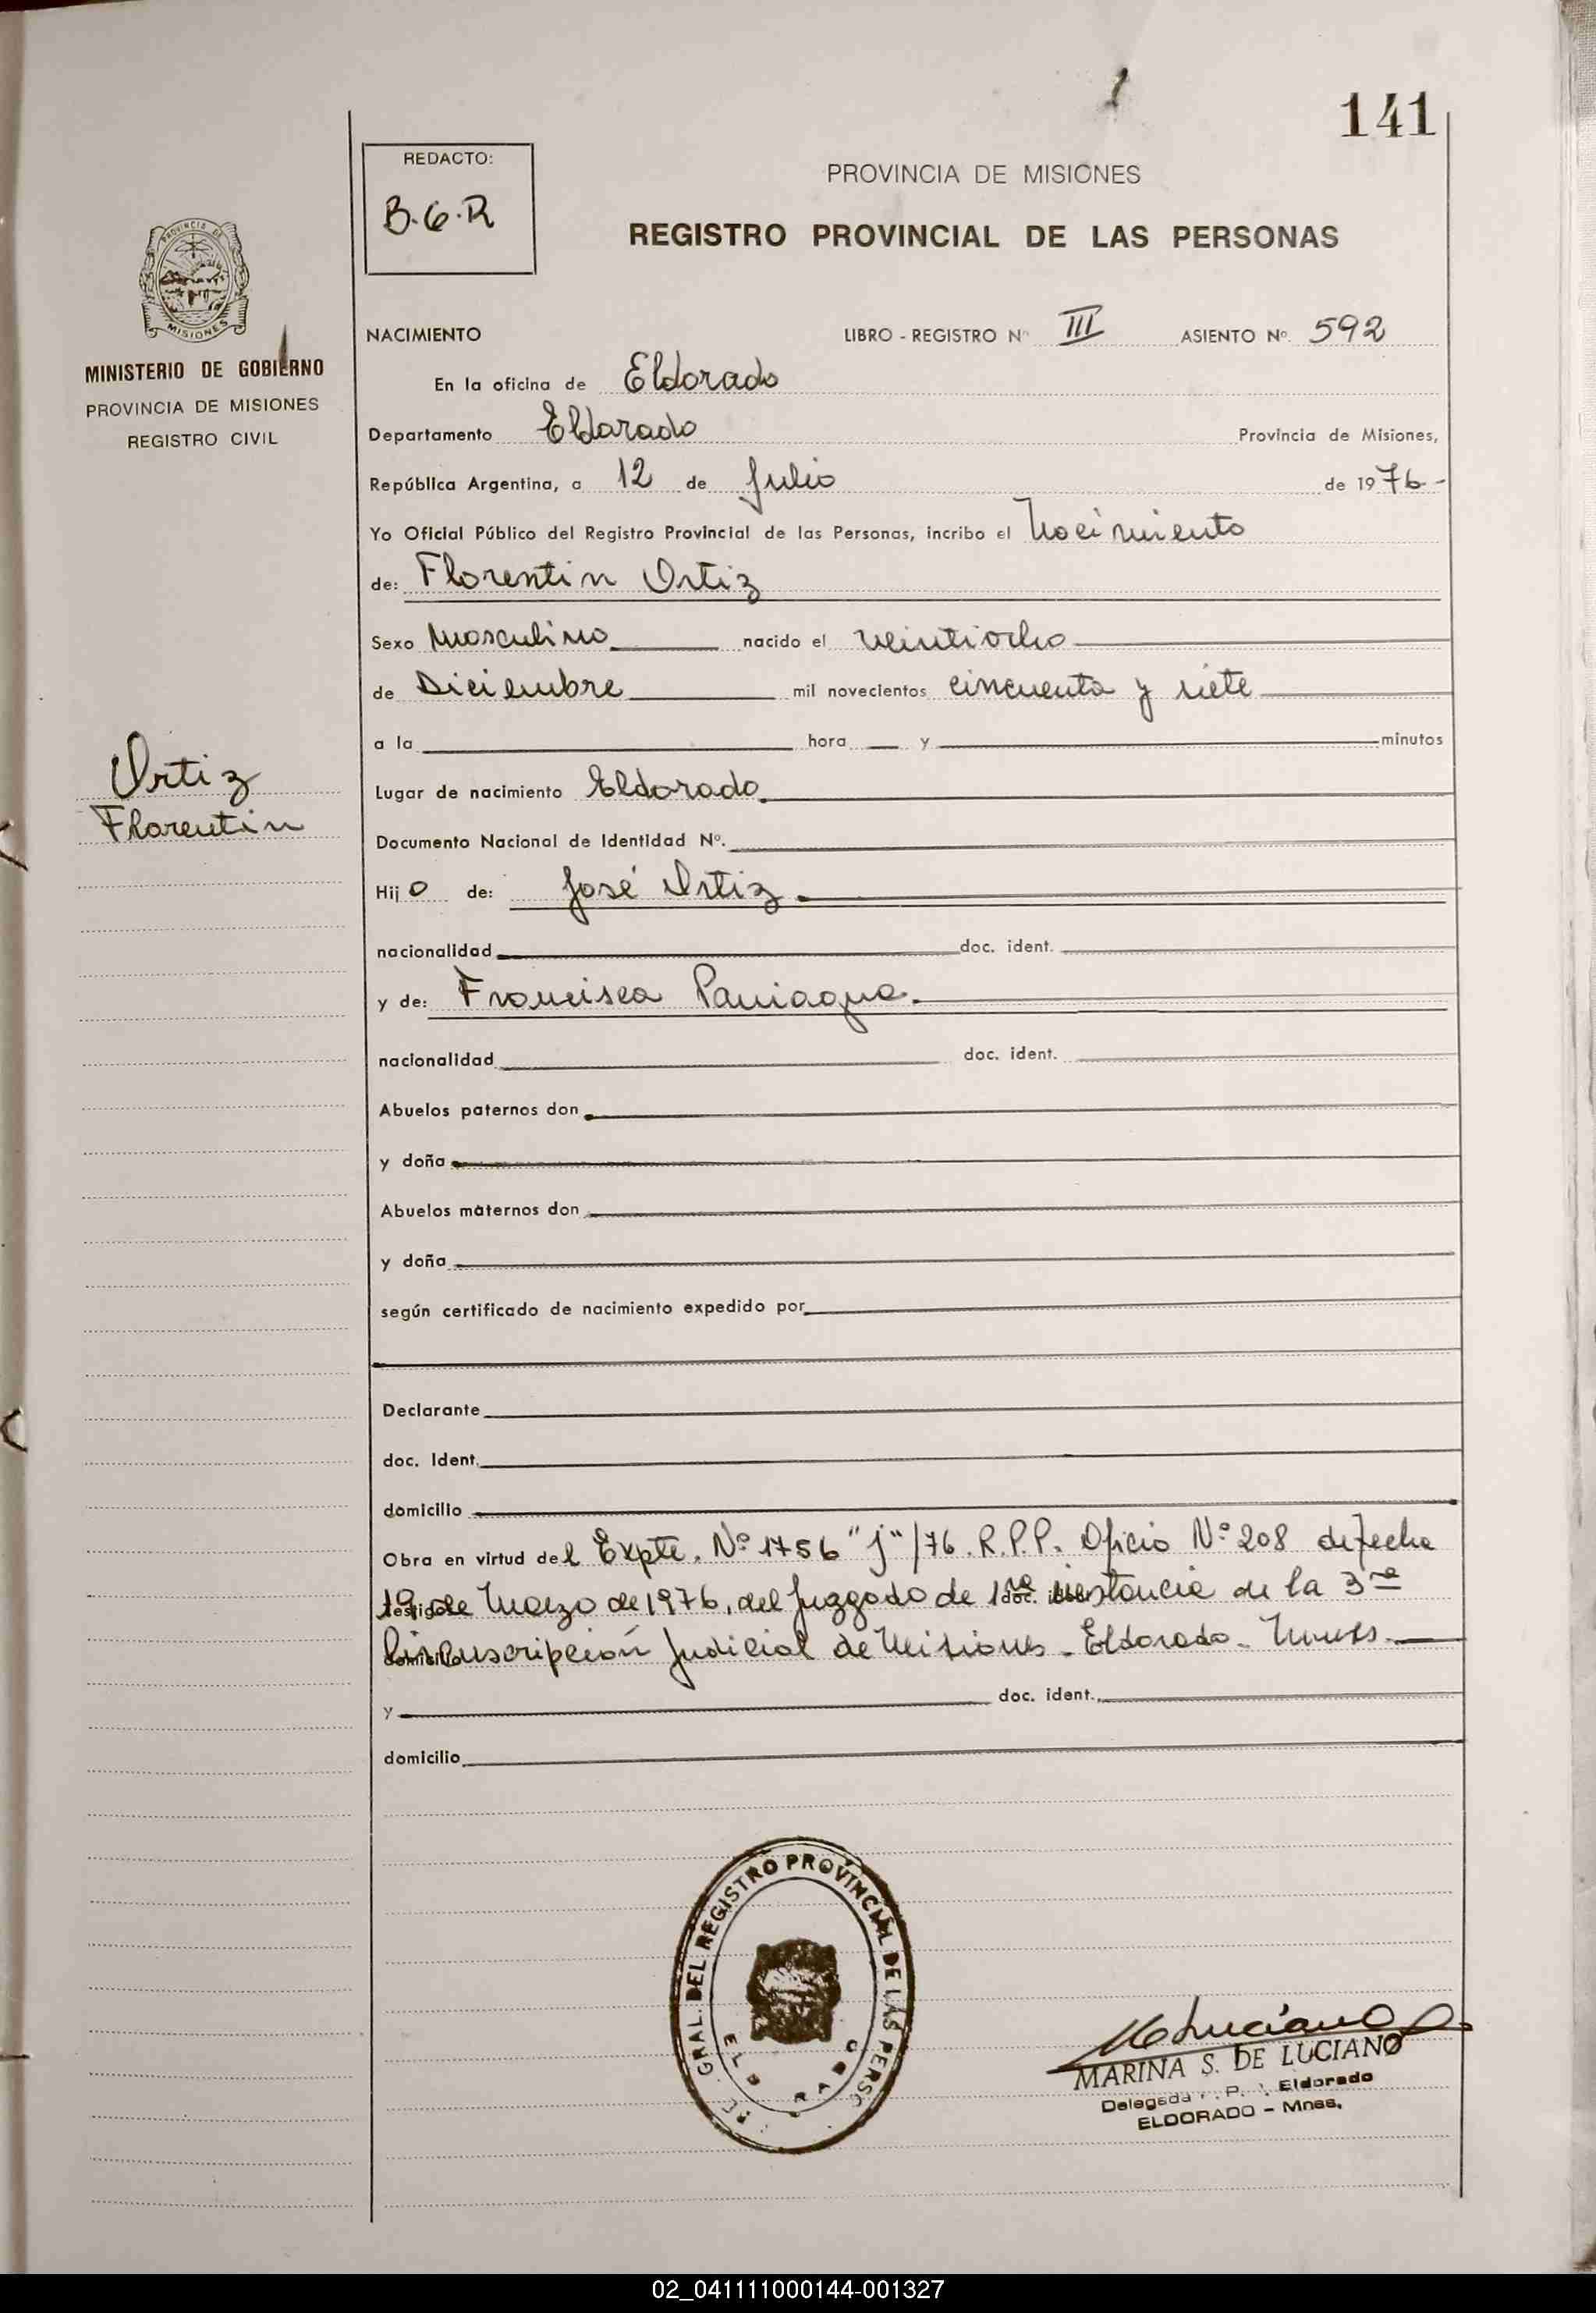 141
REDACTO:
B.G.R
PROVINCIA DE MISIONES
REGISTRO PROVINCIAL DE LAS PERSONAS
PROVINCIA DE
MISIONES
MINISTERIO DE GOBIERNO
PROVINCIA DE MISIONES
REGISTRO CIVIL
NACIMIENTO LIBRO - REGISTRO Nº III ASIENTO Nº. 592
En la oficina de Eldorado
Departamento Eldorado Provincia de Misiones,
República Argentina, a 12 de Julio de 1976-
Yo Oficial Público del Registro Provincial de las Personas, incribo el Nacimiento
de: Florentin Ortiz
Sexo Masculino nacido el veintiocho
de Diciembre mil novecientos cincuenta y siete
a la hora y minutos
Ortiz
Florentin
Lugar de nacimiento Eldorado
Documento Nacional de Identidad Nº.
Hijo de: José Ortiz.
nacionalidad doc. ident.
y de: Francisca Paniagua.
nacionalidad doc. ident.
Abuelos paternos don
y doña
Abuelos maternos don
y doña
según certificado de nacimiento expedido por
Declarante
doc. Ident.
domicilio
Obra en virtud del Expte. Nº 1756 "J"/76. R.P.P. Oficio Nº 208 de fecha
19 de Marzo de 1976, del Juzgado de 1ra instancia de la 3ra
Circunscripción Judicial de Misiones - Eldorado - Mnes.
y doc. ident.
domicilio
GRAL. DEL REGISTRO PROVINCIAL DE LAS PERSO
ELDORADO
MARINA S. DE LUCIANO
Delegada P. Eldorado
ELDORADO - Mnes.
02_041111000144-001327